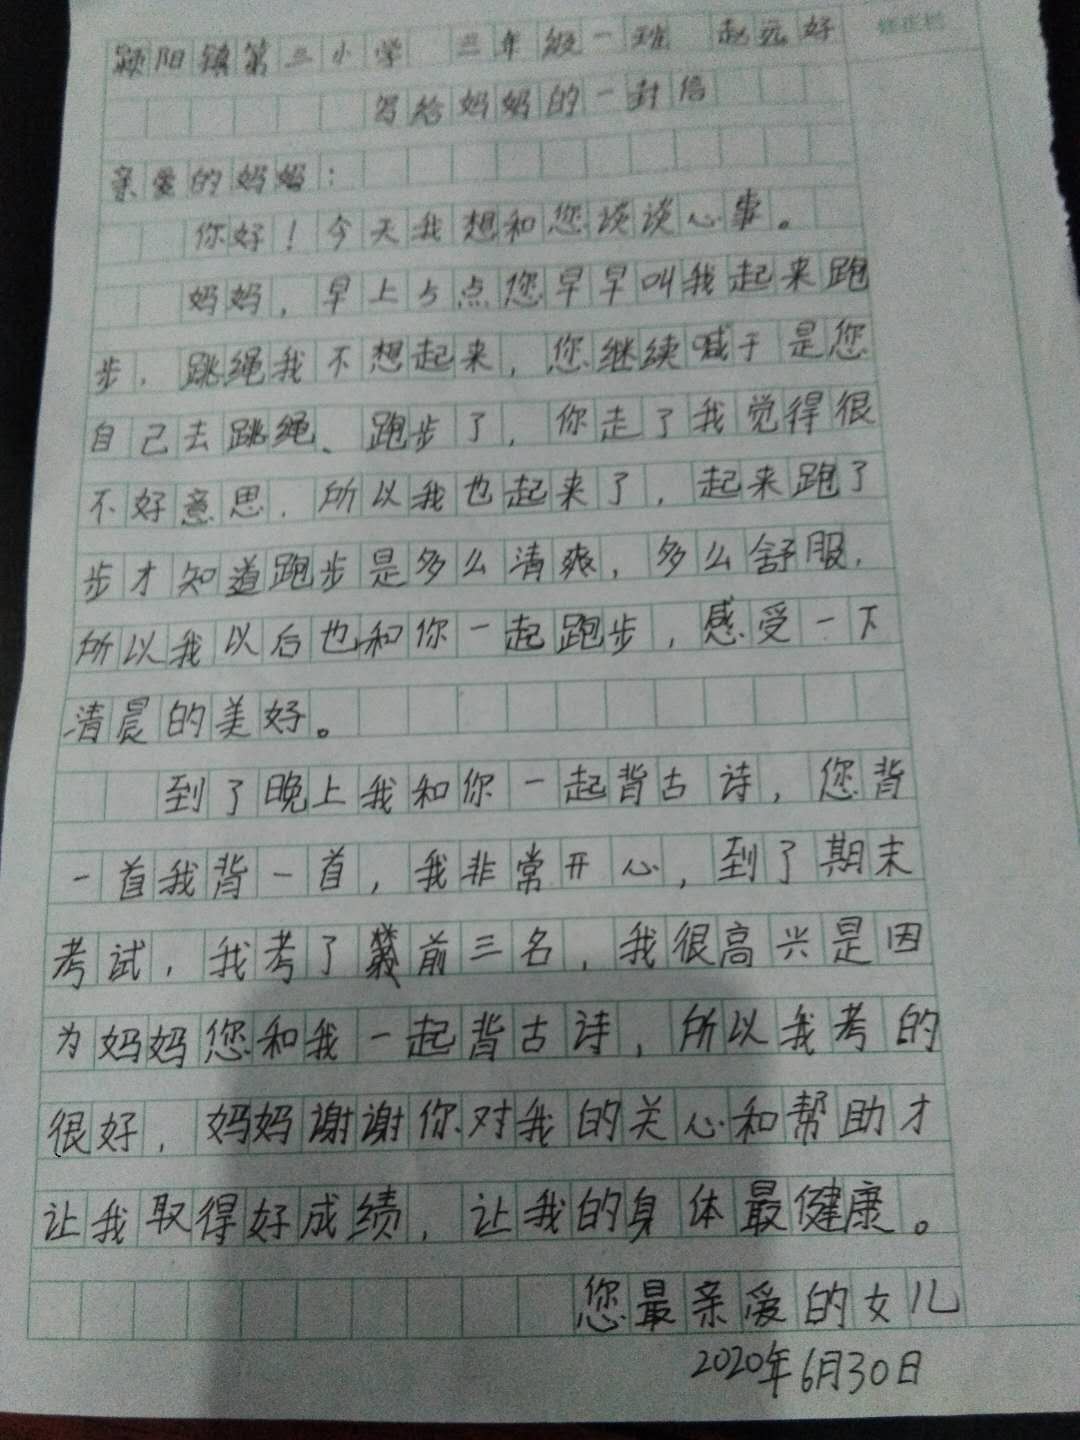 颍阳镇第三小学 三年级一班 赵远好
写给妈妈的一封信
亲爱的妈妈:
你好!今天我想和您谈谈心事。
妈妈,早上5点您早早叫我起来跑
步,跳绳我不想起来,您继续喊于是您
自己去跳绳、跑步了,你走了我觉得很
不好意思,所以我也起来了,起来跑了
步才知道跑步是多么清爽,多么舒服,
所以我以后也和你一起跑步,感受一下
清晨的美好。
到了晚上我和你一起背古诗,您背
一首我背一首,我非常开心,到了期末
考试,我考了前三名,我很高兴是因
为妈妈您和我一起背古诗,所以我考的
很好,妈妈谢谢你对我的关心和帮助才
让我取得好成绩,让我的身体最健康。
您最亲爱的女儿
2020年6月30日